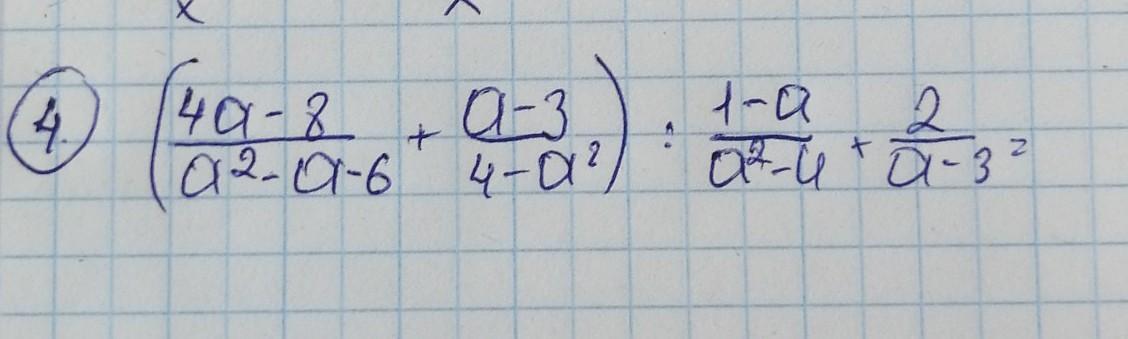 4. ((4a-8)/(a²-a-6) + (a-3)/(4-a²)) : (1-a)/(a²-4) + 2/(a-3) =